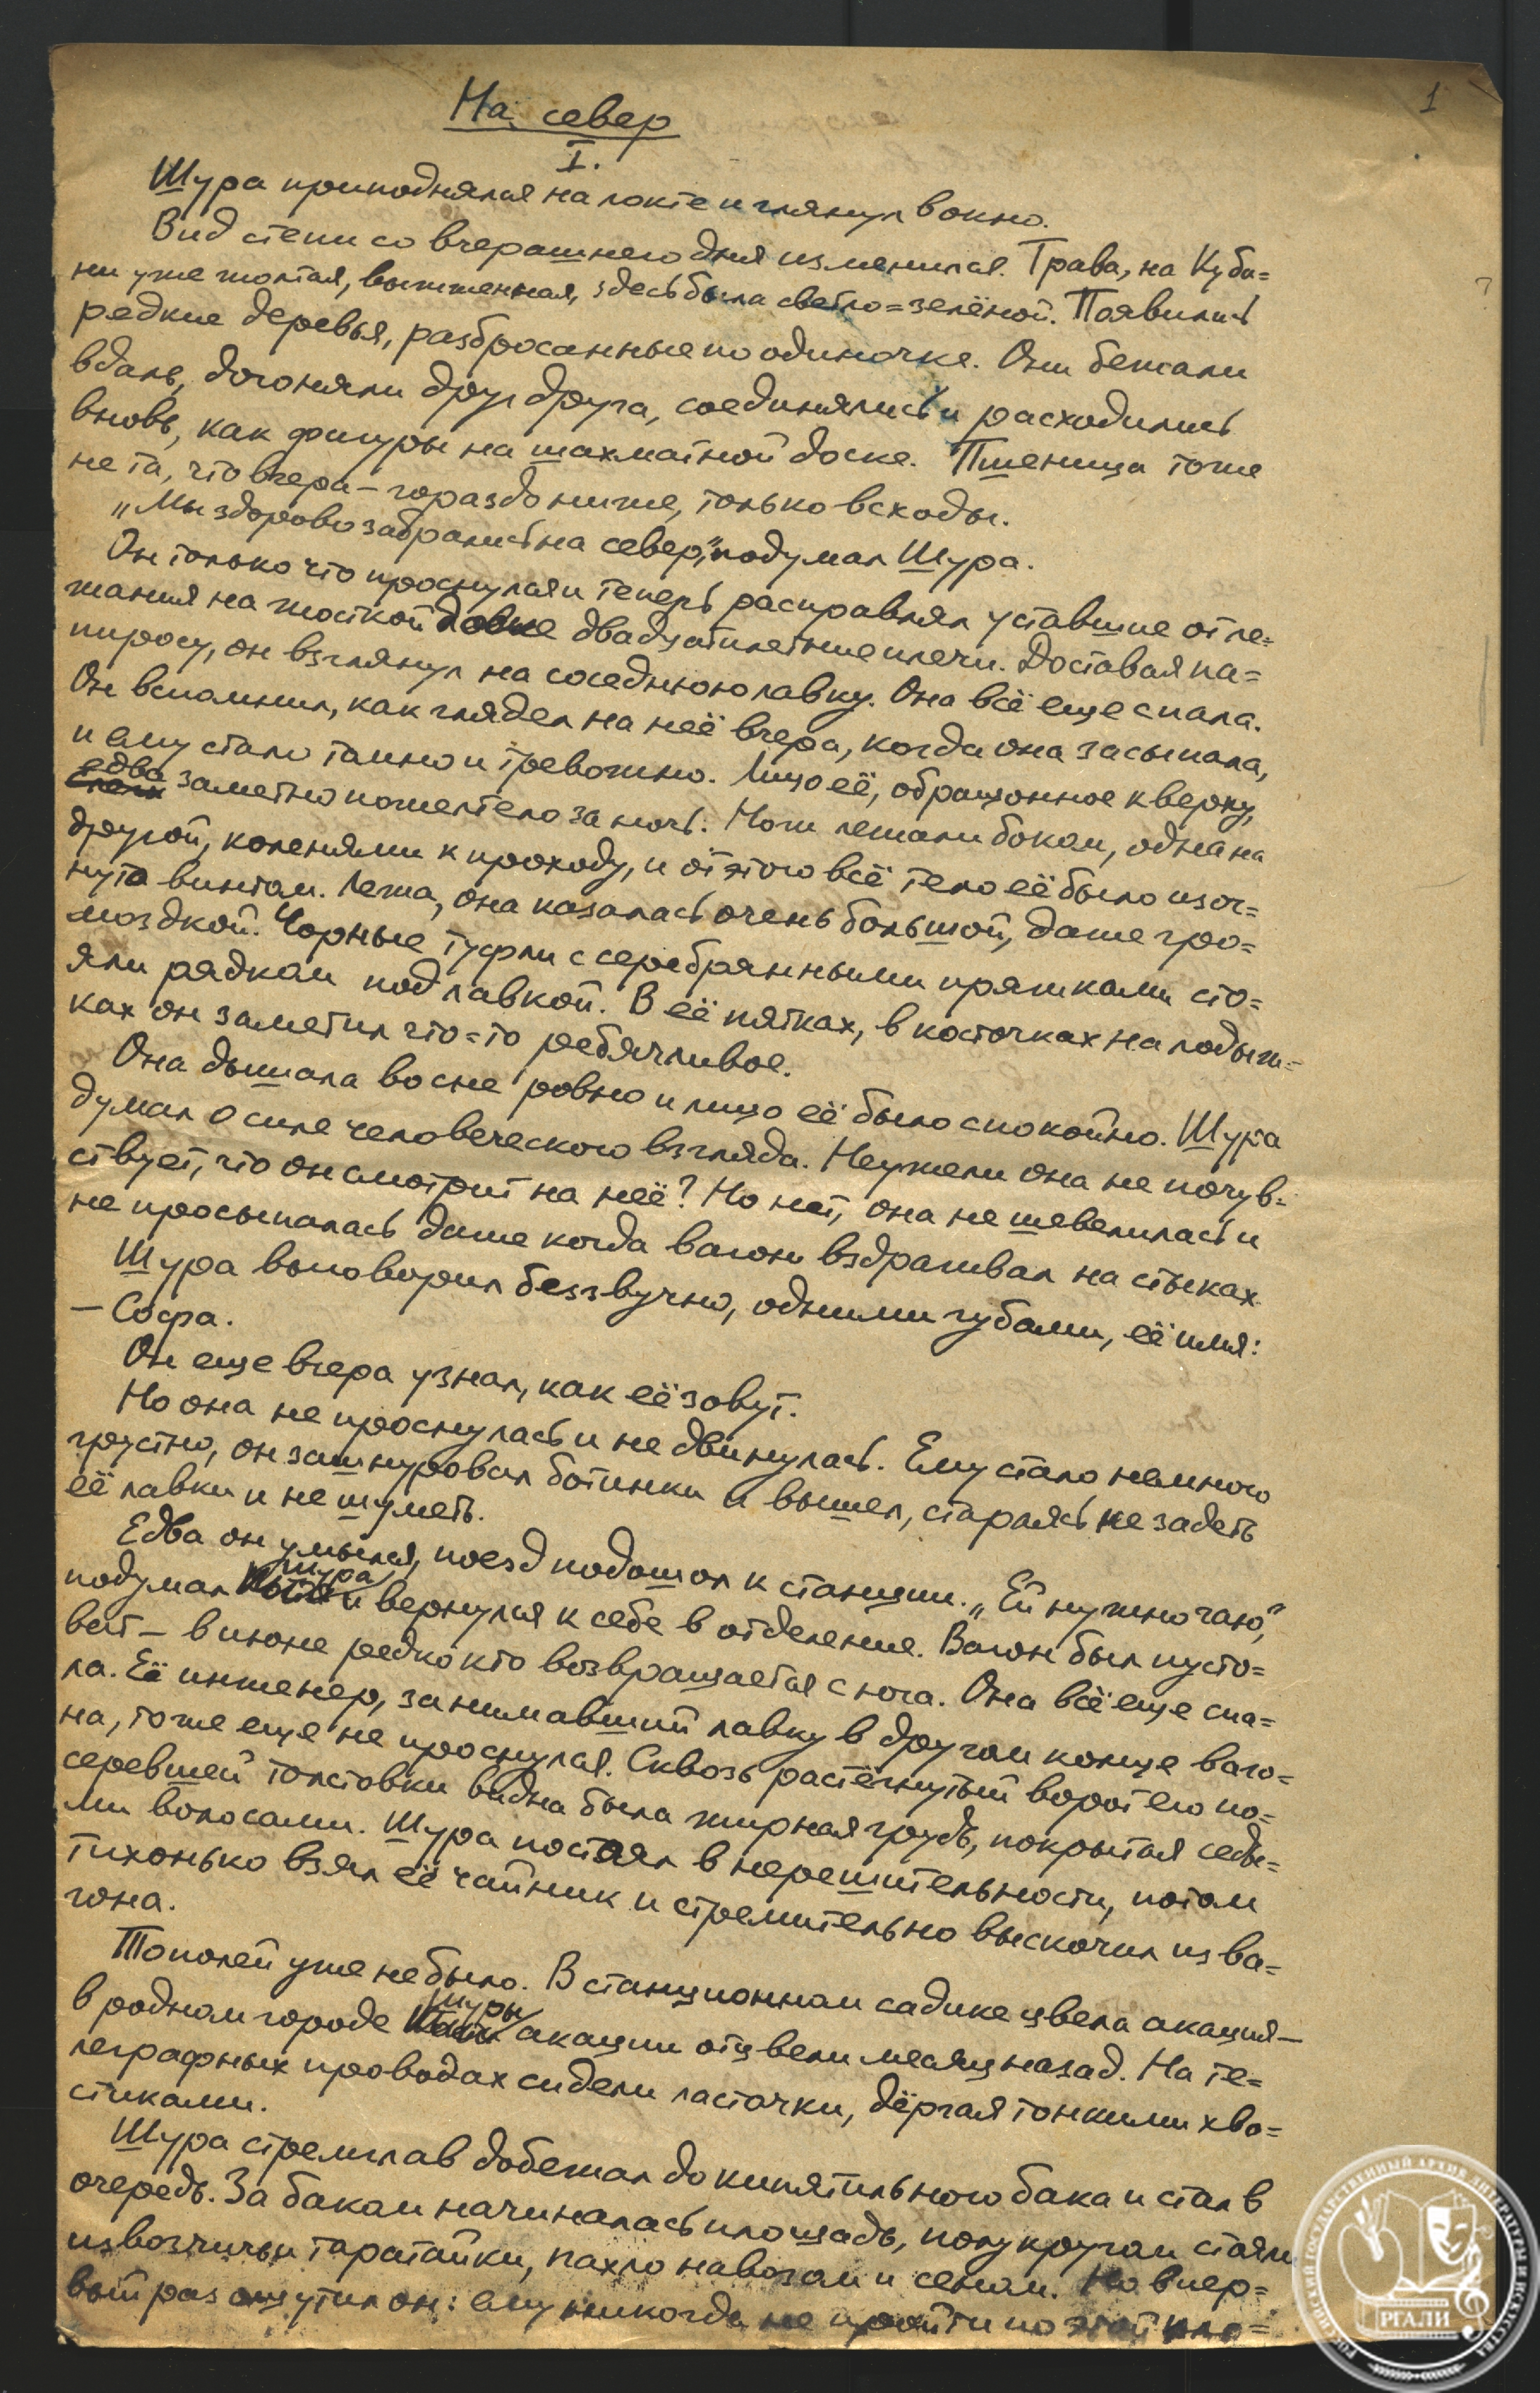 1
На север
I.
Шура приподнялся на локте и глянул в окно.
Вид степи со вчерашнего дня изменился. Трава, на Куба=
ни уже жолтая, выжженная, здесь была светло=зелёной. Появились
редкие деревья, разбросанные по одиночке. Они бежали
вдаль, догоняли друг друга, соединялись и расходились
вновь, как фигуры на шахматной доске. Пшеница тоже
не та, что вчера – гораздо ниже, только всходы.
„Мы здорово забрались на север," подумал Шура.
Он только что проснулся и теперь расправлял уставшие от ле=
жания на жосткой лавке двадцатилетние плечи. Доставая па=
пиросу, он взглянул на соседнюю лавку. Она всё еще спала.
Он вспомнил, как глядел на неё вчера, когда она засыпала,
и ему стало томно и тревожно. Лицо её, обращонное кверху,
едва заметно пожелтело за ночь. Ноги лежали боком, одна на
другой, коленями к проходу, и от этого всё тело её было изог=
нуто винтом. Лежа, она казалась очень большой, даже гро=
моздкой. Чорные туфли с серебрянными пряжками сто=
яли рядком под лавкой. В её пятках, в косточках на лодыж=
ках он заметил что=то ребячливое.
Она дышала во сне ровно и лицо её было спокойно. Шура
думал о силе человеческого взгляда. Неужели она не почув=
ствует, что он смотрит на неё? Но нет, она не шевелилась и
не просыпалась даже когда вагон вздрагивал на стыках.
Шура выговорил беззвучно, одними губами, её имя:
– Софа.
Он еще вчера узнал, как её зовут.
Но она не проснулась и не двинулась. Ему стало немного
грустно, он зашнуровал ботинки и вышел, стараясь не задеть
её лавки и не шуметь.
Едва он умылся, поезд подошол к станции. „Ей нужно чаю,"
подумал Шура и вернулся к себе в отделение. Вагон был пусто=
ват – в июне редко кто возвращается с юга. Она всё еще спа=
ла. Её инженер, занимавший лавку в другом конце ваго=
на, тоже еще не проснулся. Сквозь растёгнутый ворот его по=
серевшей толстовки видна была жирная грудь, покрытая седы=
ми волосами. Шура постоял в нерешительности, потом
тихонько взял её чайник и стремительно выскочил из ва=
гона.
Тополей уже не было. В станционном садике цвела акация –
в родном городе Шуры акации отцвели месяц назад. На те=
леграфных проводах сидели ласточки, дёргая тонкими хво=
стиками.
Шура стремглав добежал до кипятильного бака и стал в
очередь. За баком начиналась площадь, полукругом стояли
извозчичьи таратайки, пахло навозом и сеном. Но впер=
вый раз ощутил он: ему никогда не пройти по этой пло=
РОССИЙСКИЙ ГОСУДАРСТВЕННЫЙ АРХИВ ЛИТЕРАТУРЫ И ИСКУССТВА
РГАЛИ